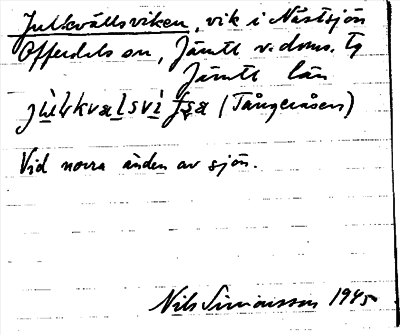 Julkvällsviken, vik i Nästsjön
Offerdals sn, Jämtl v. doms. tg
Jämtl län
(Tångeråsen)
Vid norra änden av sjön.
Nils Simonsson 1945